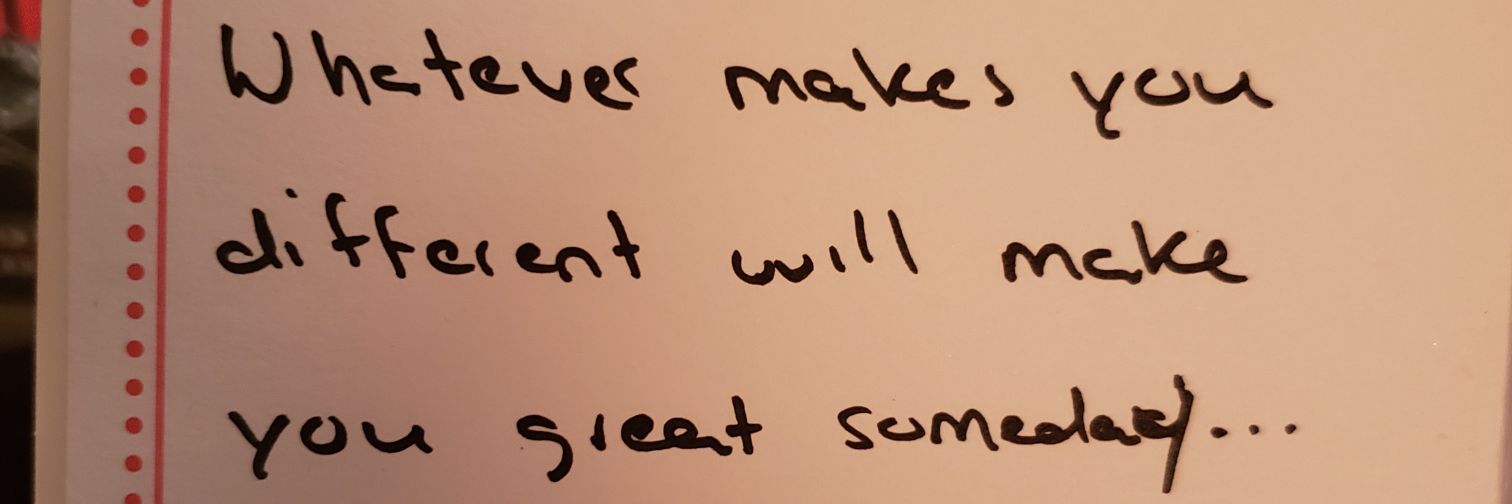 Whatever makes you
different will make
you great someday...